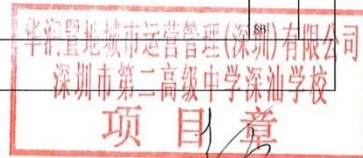 华润置地城市运营管理(深圳)有限公司
深圳市第二高级中学深汕学校
项目章